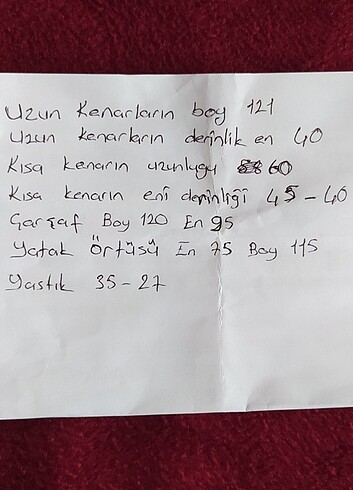 Uzun Kenarların boy 121
uzun kenarların derinlik en 40
Kısa kenarın uzunlugu 60
Kısa kenarın eni derinliği 45 - 40
Çarşaf Boy 120 En 95
Yatak Örtüsü En 75 Boy 115
Yastık 35 - 27